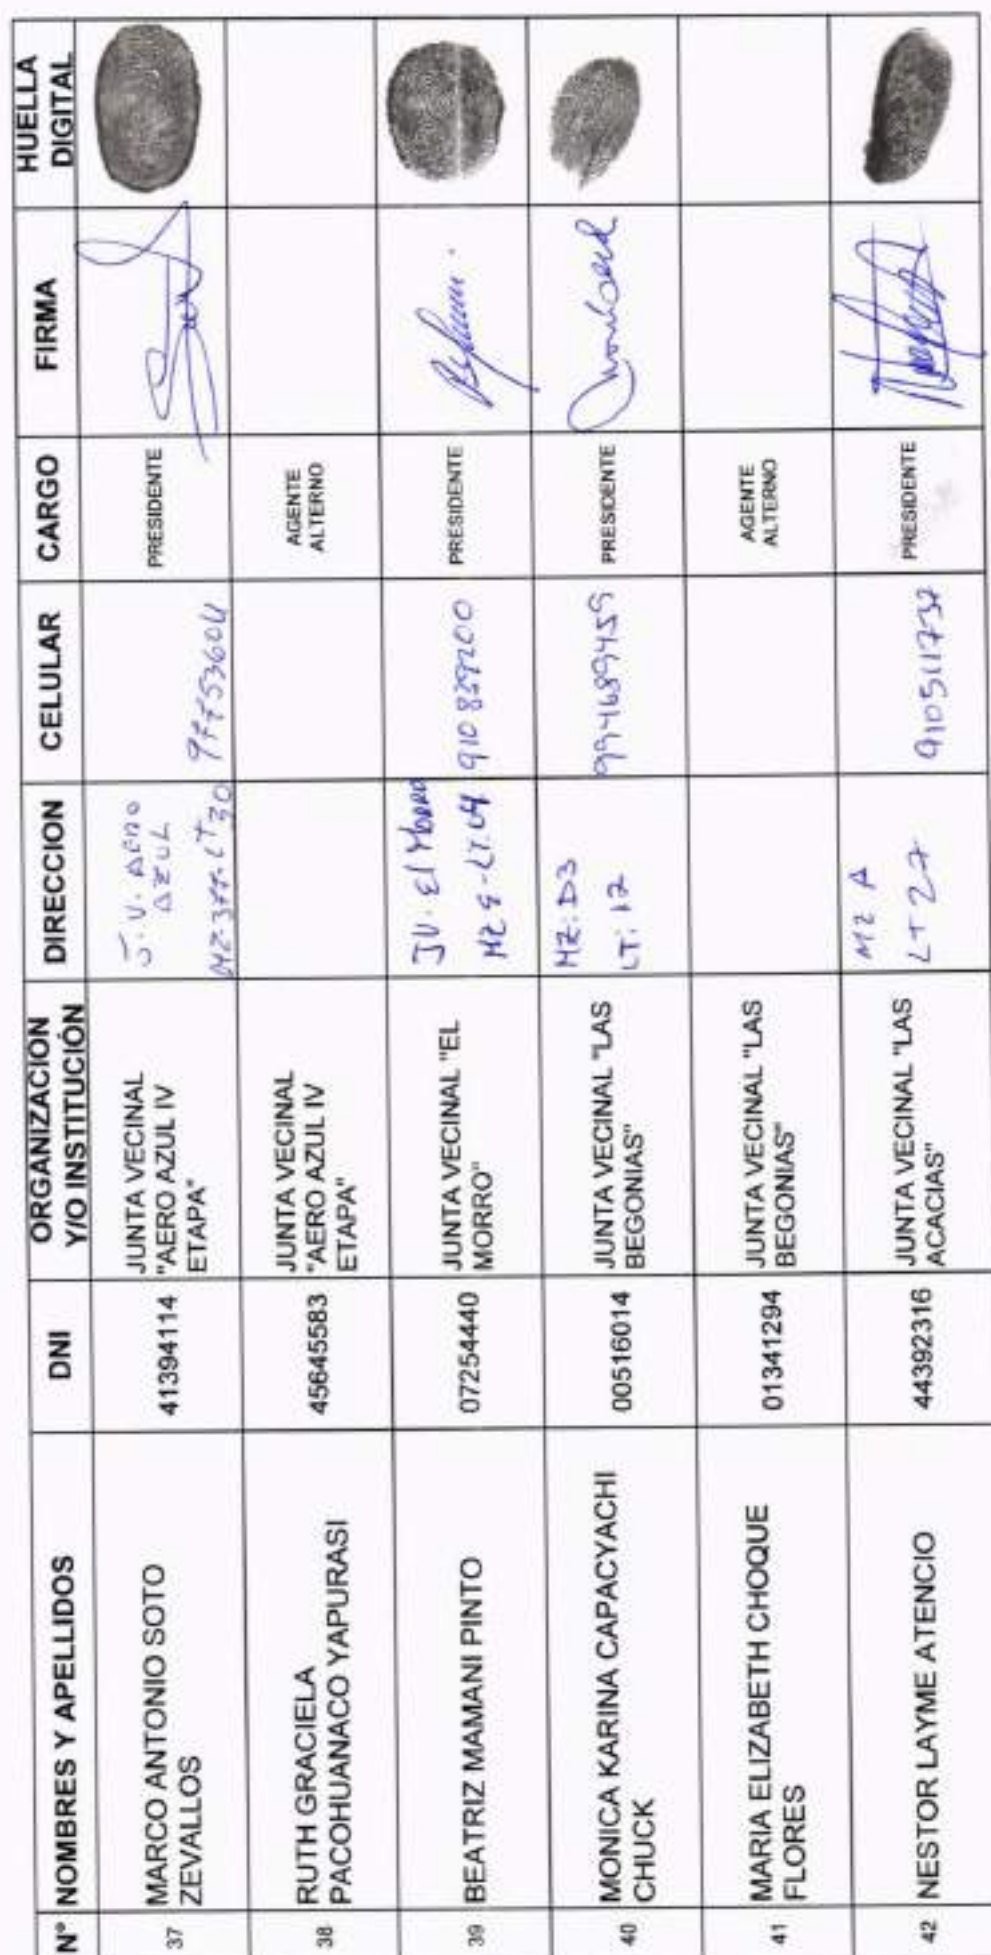 N° NOMBRES Y APELLIDOS DNI ORGANIZACION Y/O INSTITUCIÓN DIRECCION CELULAR CARGO FIRMA HUELLA DIGITAL
37 MARCO ANTONIO SOTO ZEVALLOS 41394114 JUNTA VECINAL "AERO AZUL IV ETAPA" J.V. AERO AZUL PRESIDENTE
38 RUTH GRACIELA PACOHUANACO YAPURASI 45645583 JUNTA VECINAL "AERO AZUL IV ETAPA" AGENTE ALTERNO
39 BEATRIZ MAMANI PINTO 07254440 JUNTA VECINAL "EL MORRO" JV. El Morro PRESIDENTE
40 MONICA KARINA CAPACYACHI CHUCK 00516014 JUNTA VECINAL "LAS BEGONIAS" MZ: D3 LT: 12 994689459 PRESIDENTE
41 MARIA ELIZABETH CHOQUE FLORES 01341294 JUNTA VECINAL "LAS BEGONIAS" AGENTE ALTERNO
42 NESTOR LAYME ATENCIO 44392316 JUNTA VECINAL "LAS ACACIAS" MZ A LT 27 910511737 PRESIDENTE